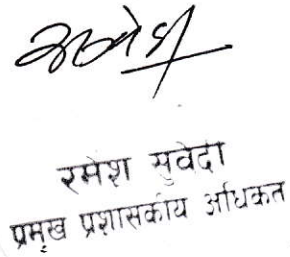 रमेश सुवेदी
प्रमुख प्रशासकीय अधिकत